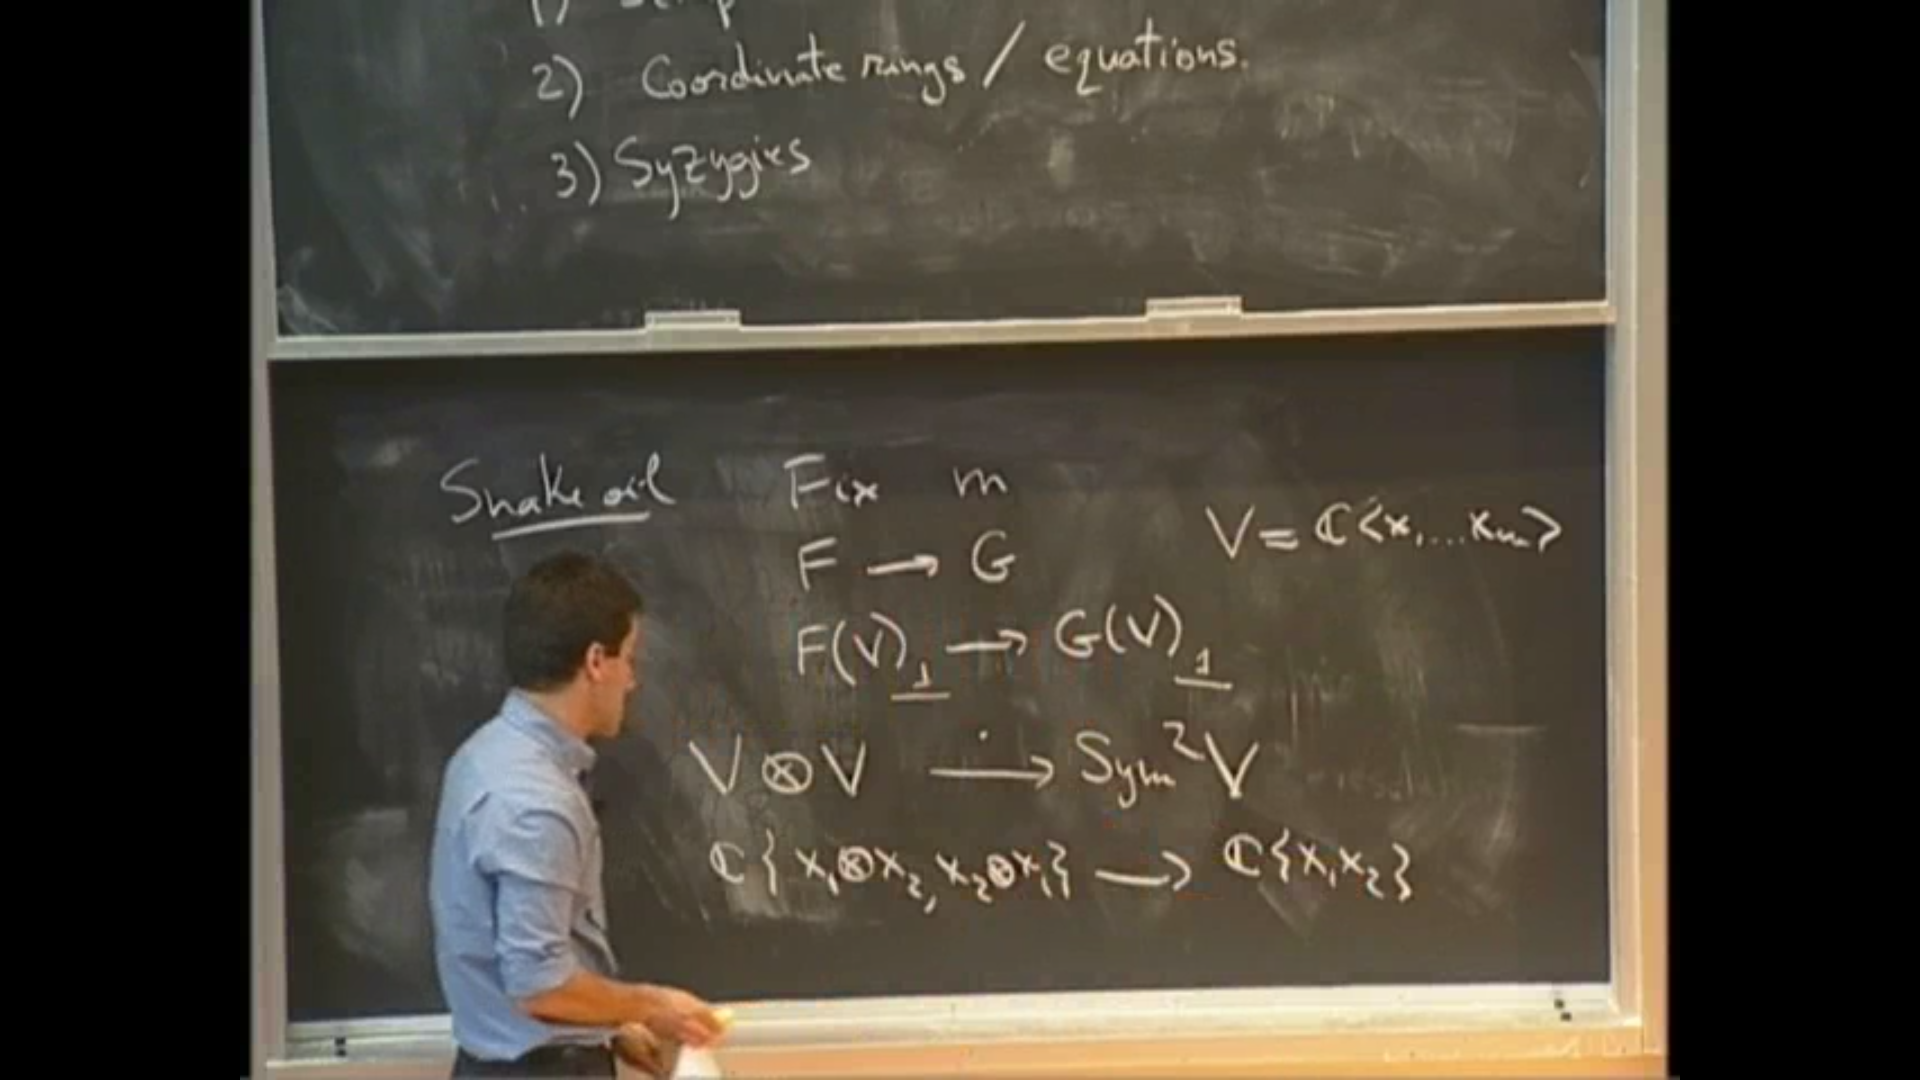 1)
2) Coordinate rings / equations.
3) Syzygies
Snake oil Fix m
F → G V = ℂ<x₁...xₘ>
F(V)₁ → G(V)₁
V ⊗ V → Sym² V
ℂ{x₁⊗x₂, x₂⊗x₁} → ℂ{x₁x₂}